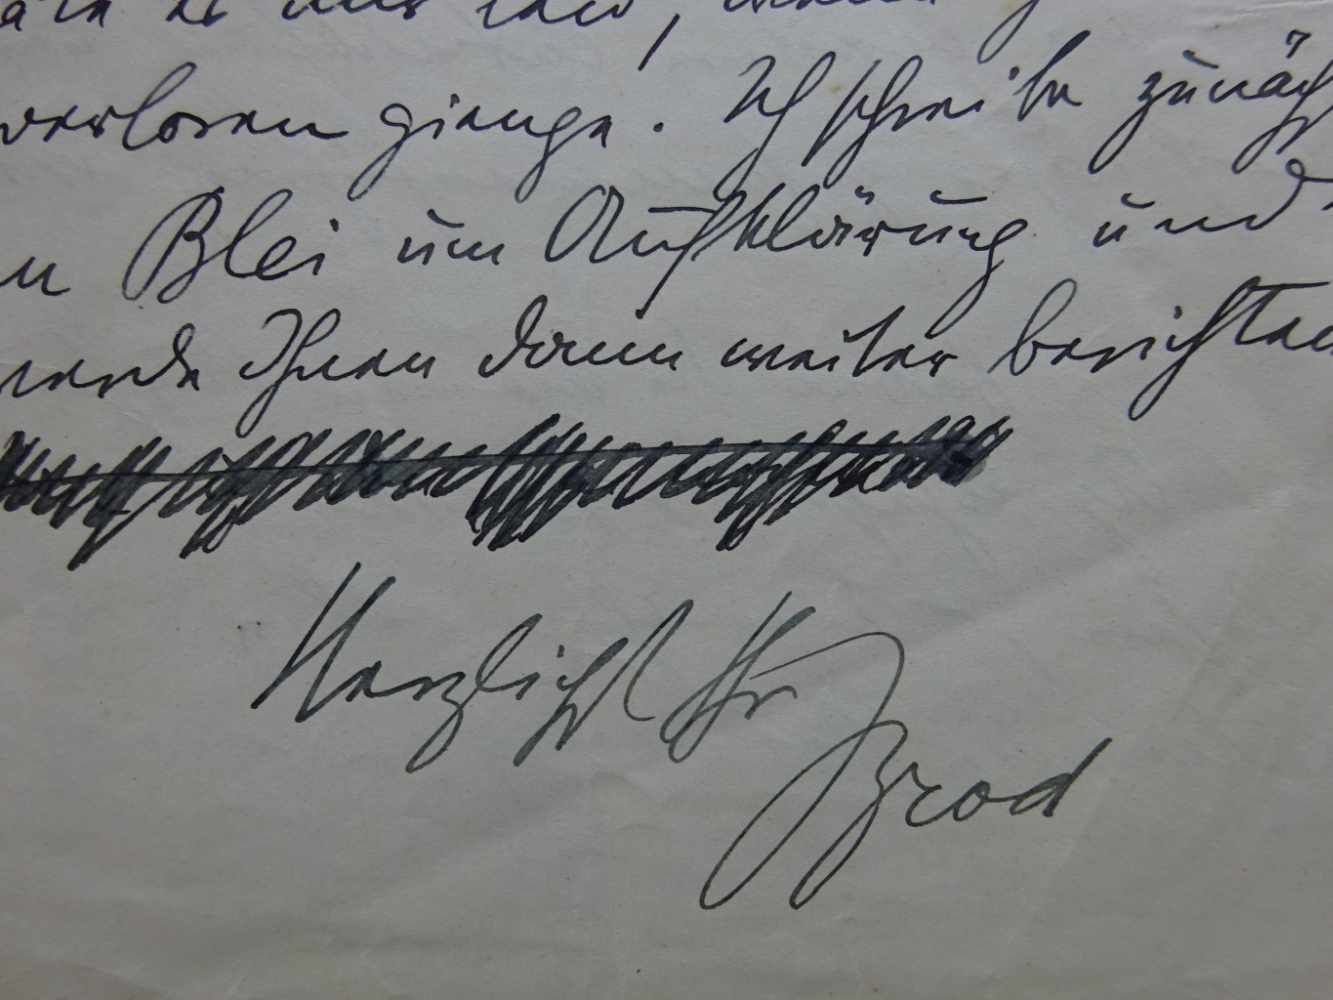 es mir leid,
verloren gienge. Ich schreibe zunäch
n Blei um Aufklärung und
werde Ihnen dann weiter berichten
Herzlichst Ihr
Brod